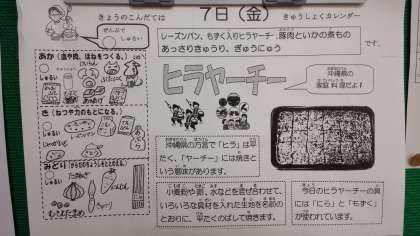 きょうのこんだては
7日(金)
きゅうしょくカレンダー
ぜんぶで
しゅるい
レーズンパン、もずく入りヒラヤーチー、豚肉といかの煮もの
あっさりきゅうり、ぎゅうにゅう
です。
あか(血や肉、ほねをつくる。)
しゅるい
ヒラヤーチー
沖縄県の
家庭料理だよ!
き(ねつや力のもとになる。)
しゅるい
みどり(からだのちょうしをととのえる)
しゅるい
たまねぎ
にんじん
きゅうり
沖縄県の方言で「ヒラ」は平
たく、「ヤーチー」には焼きと
いう意味があります。
小麦粉や卵、水などを混ぜ合わせて、
いろいろな具材を入れた生地を名前の
とおりに、平たくのばして焼きます。
今日のヒラヤーチーの具
には「にら」と「もずく」
が使われています。